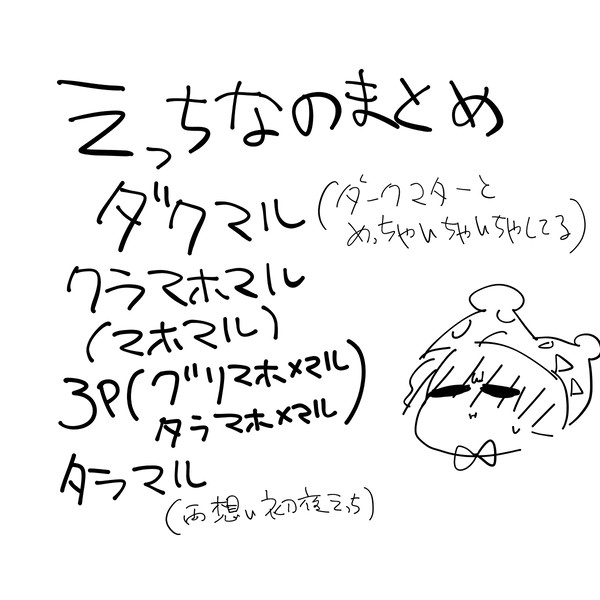 えっちなのまとめ
ダクマル(ダークマターと
めっちゃいちゃいちゃしてる)
クラマホマル
(マホマル)
3P(グリマホ×マル
タラマホ×マル)
タラマル
(両想い初夜えっち)